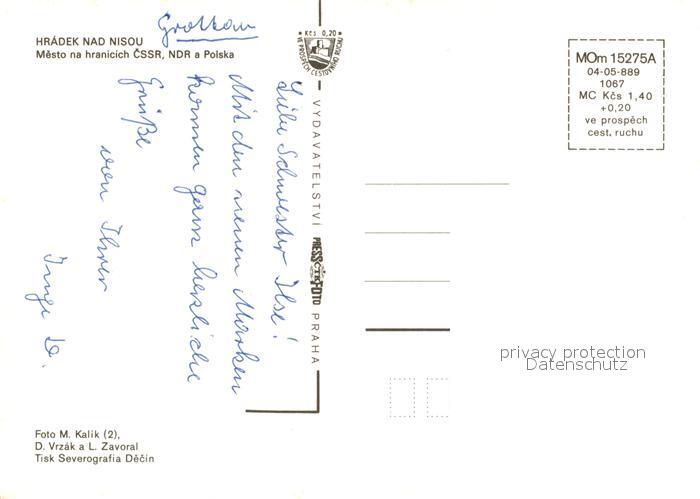 Grottau
HRÁDEK NAD NISOU
Město na hranicích ČSSR, NDR a Polska
Kčs 0,20
VE PROSPĚCH CESTOVNÍHO RUCHU
MOm 15275A
04-05-889
1067
MC Kčs 1,40
+0,20
ve prospěch
cest. ruchu
Liebe Schwester Ilse!
Mit den neuen Marken
kommen ganz herzliche
Grüße
von Ihrer
Inge D.
VYDAVATELSTVÍ PRESSFOTO PRAHA
ČTK
privacy protection
Datenschutz
Foto M. Kalík (2),
D. Vrzák a L. Zavoral
Tisk Severografia Děčín